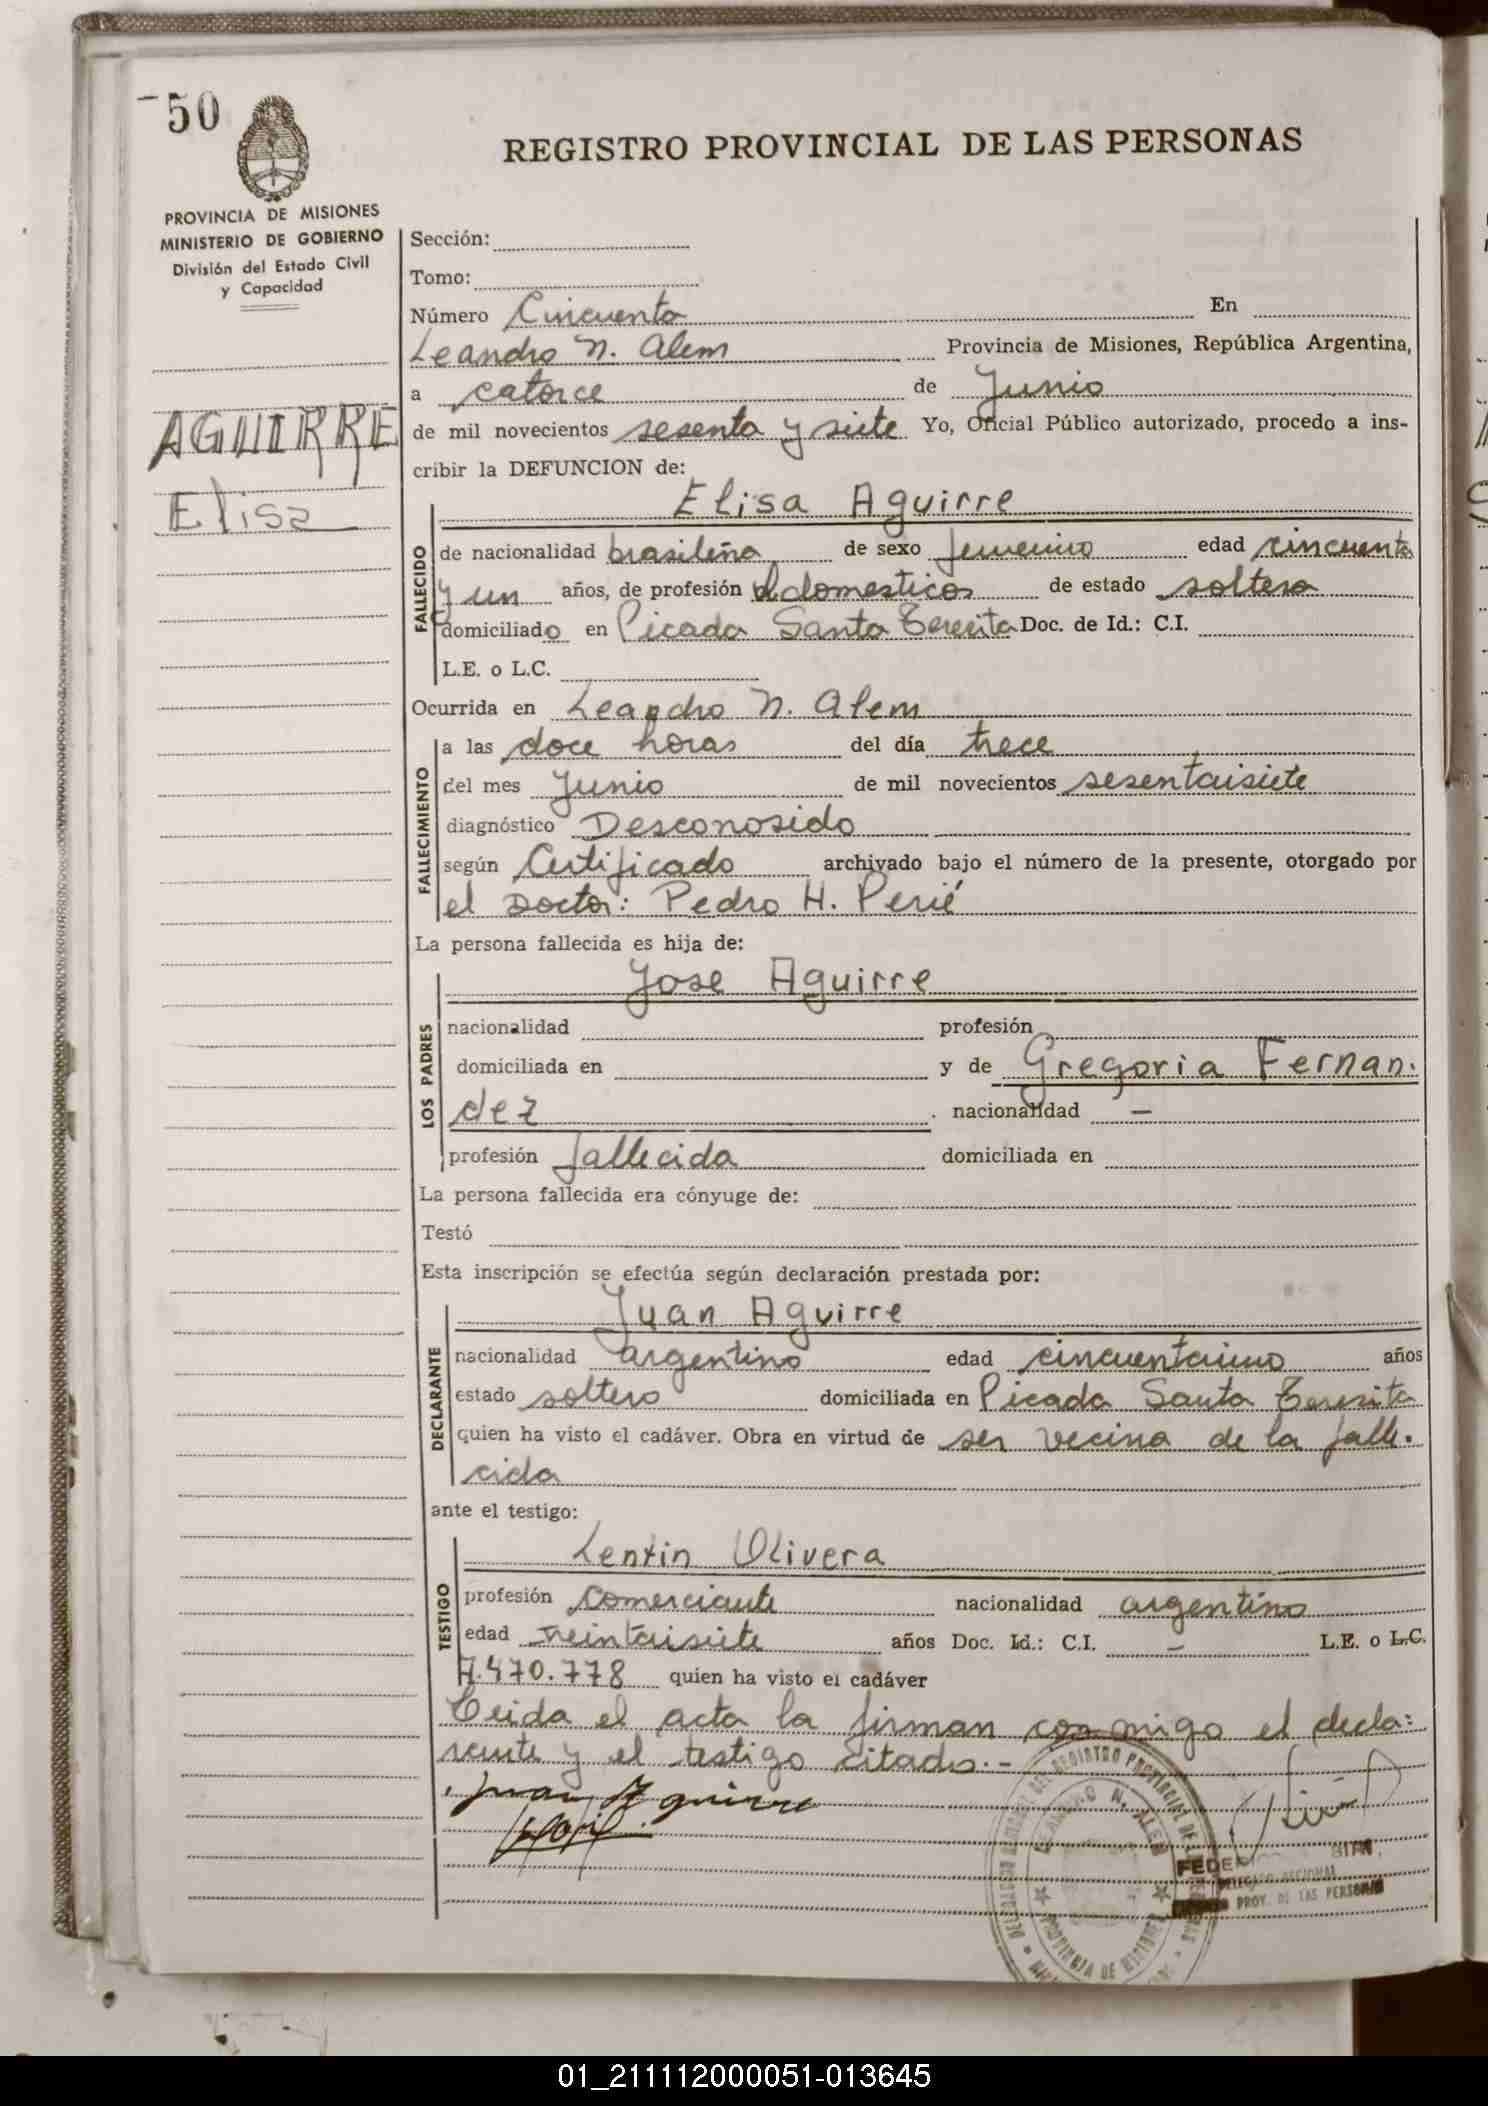 50
REGISTRO PROVINCIAL DE LAS PERSONAS
PROVINCIA DE MISIONES
MINISTERIO DE GOBIERNO
División del Estado Civil
y Capacidad
AGUIRRE
Elisa
Sección:
Tomo:
Número Cincuenta En
Leandro N. Alem Provincia de Misiones, República Argentina,
a catorce de Junio
de mil novecientos sesenta y siete Yo, Oficial Público autorizado, procedo a ins-
cribir la DEFUNCION de:
Elisa Aguirre
FALLECIDO
de nacionalidad brasileña de sexo femenino edad cincuenta
y un años, de profesión domesticos de estado soltera
domiciliado en Picada Santa Teresita Doc. de Id.: C.I.
L.E. o L.C.
Ocurrida en Leandro N. Alem
FALLECIMIENTO
a las doce horas del día trece
del mes Junio de mil novecientos sesentaisiete
diagnóstico Desconosido
según Certificado archivado bajo el número de la presente, otorgado por
el Doctor: Pedro H. Perié
La persona fallecida es hija de:
LOS PADRES
Jose Aguirre
nacionalidad profesión
domiciliada en y de Gregoria Fernan.
dez . nacionalidad —
profesión fallecida domiciliada en
La persona fallecida era cónyuge de:
Testó
Esta inscripción se efectúa según declaración prestada por:
DECLARANTE
Juan Aguirre
nacionalidad argentino edad cincuentaiuno años
estado soltero domiciliada en Picada Santa Teresita
quien ha visto el cadáver. Obra en virtud de ser vecina de la falle.
cida
ante el testigo:
TESTIGO
Lentin Olivera
profesión comerciante nacionalidad argentino
edad treintaisiete años Doc. Id.: C.I. — L.E. o L.C.
7.470.778 quien ha visto el cadáver
Leida el acta la firman conmigo el decla:
rante y el testigo citados.-
Juan Aguirre
LEANDRO N. ALEM
PROVINCIA DE MISIONES
PROV. DE LAS PERSONAS
01_211112000051-013645